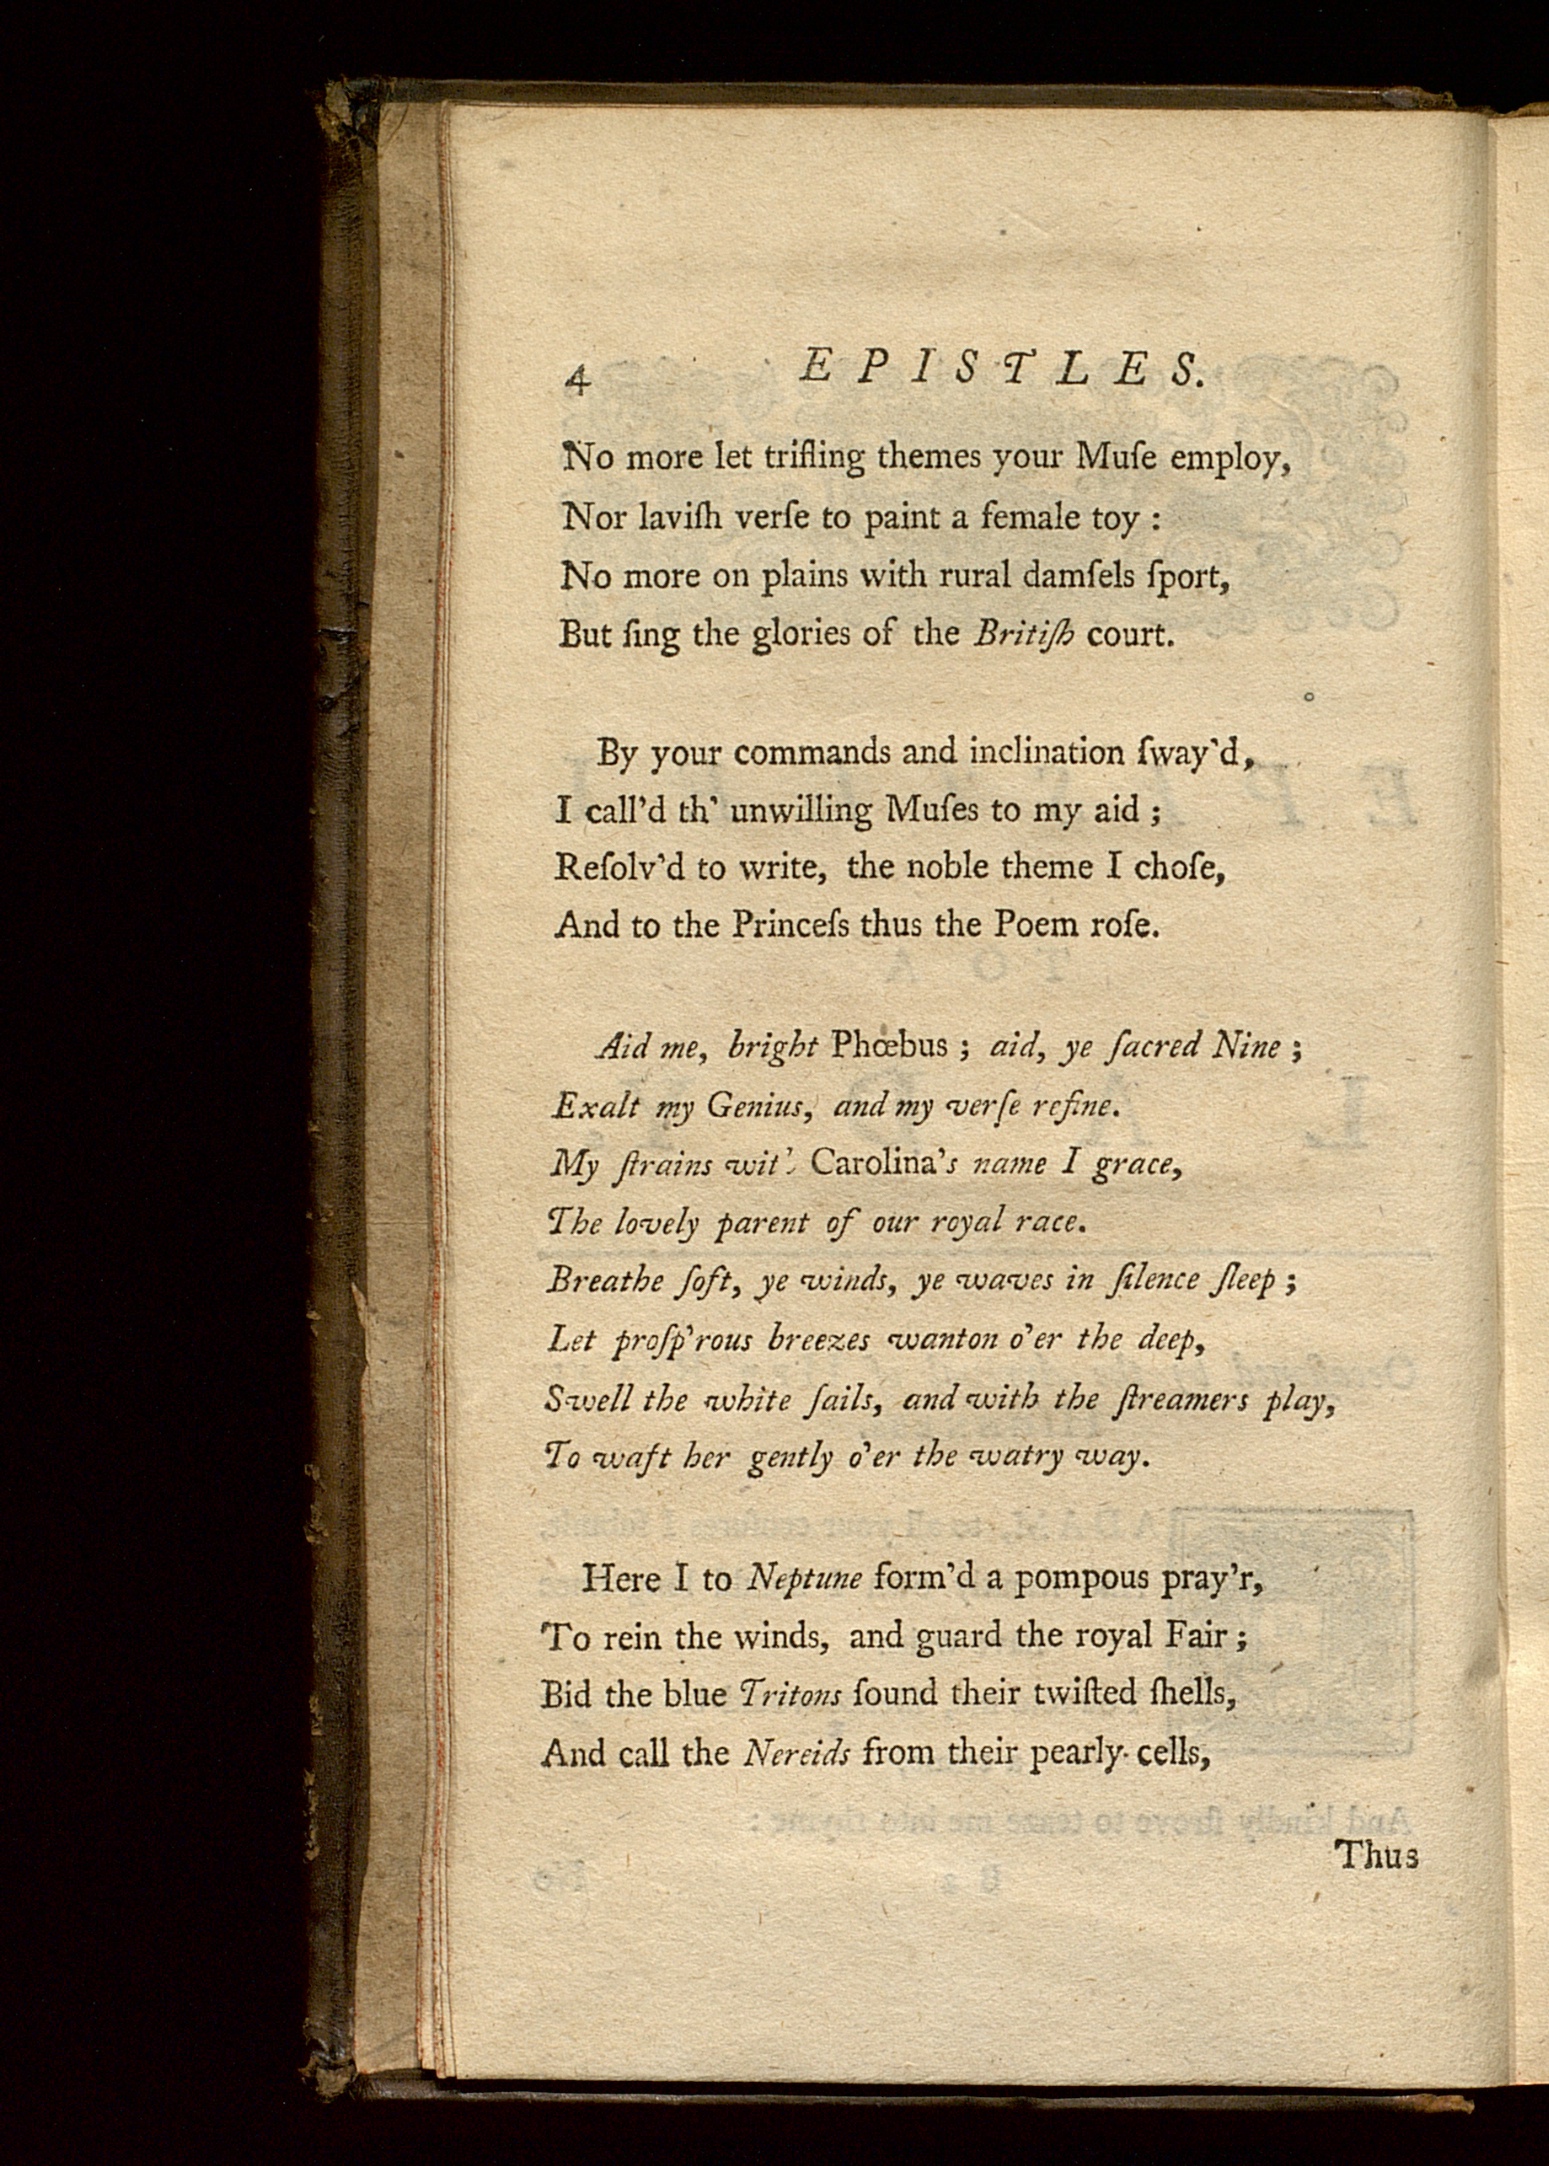 4 EPISTLES.
No more let trifling themes your Muſe employ,
Nor laviſh verſe to paint a female toy :
No more on plains with rural damſels ſport,
But ſing the glories of the Britiſh court.
By your commands and inclination ſway'd,
I call'd th' unwilling Muſes to my aid ;
Reſolv'd to write, the noble theme I choſe,
And to the Princeſs thus the Poem roſe.
Aid me, bright Phœbus ; aid, ye ſacred Nine ;
Exalt my Genius, and my verſe refine.
My ſtrains wit' Carolina's name I grace,
The lovely parent of our royal race.
Breathe ſoft, ye winds, ye waves in ſilence ſleep ;
Let proſp'rous breezes wanton o'er the deep,
Swell the white ſails, and with the ſtreamers play,
To waft her gently o'er the watry way.
Here I to Neptune form'd a pompous pray'r,
To rein the winds, and guard the royal Fair ;
Bid the blue Tritons ſound their twiſted ſhells,
And call the Nereids from their pearly cells,
Thus